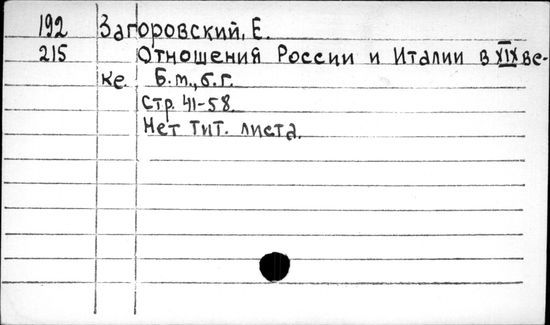 192 Загоровский, Е.
215 Отношения России и Италии в XIX ве-
ке. Б.м., б.г.
Стр. 41-58.
Нет тит. листа.